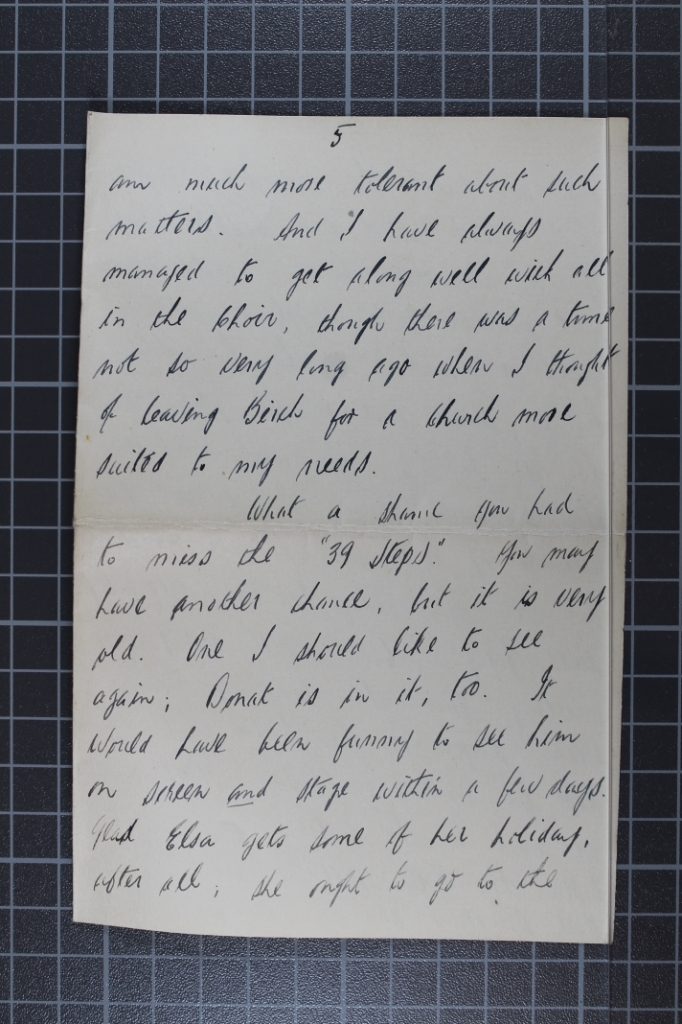 5
am much more tolerant about such
matters. And I have always
managed to get along well with all
in the Choir, though there was a time
not so very long ago when I thought
of leaving Birch for a church more
suited to my needs.
What a shame you had
to miss the "39 Steps". You may
have another chance, but it is very
old. One I should like to see
again; Donat is in it, too. It
would have been funny to see him
on screen and stage within a few days.
Glad Elsa gets some of her holiday,
after all; she ought to go to the